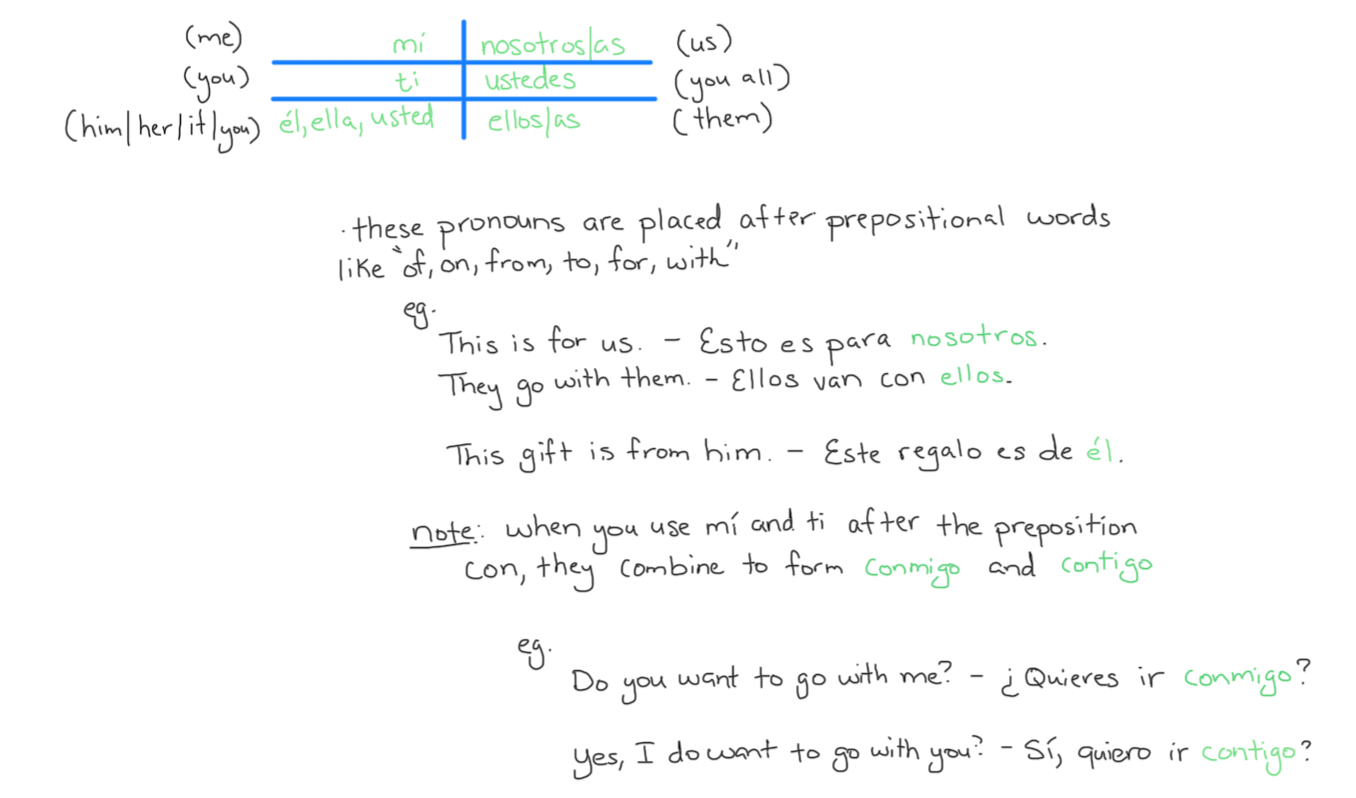 (me) mí nosotros/as (us)
(you) ti ustedes (you all)
(him/her/it/you) él, ella, usted ellos/as (them)
· these pronouns are placed after prepositional words
like "of, on, from, to, for, with"
eg.
This is for us. - Esto es para nosotros.
They go with them. - Ellos van con ellos.
This gift is from him. - Este regalo es de él.
note: when you use mí and ti after the preposition
con, they combine to form conmigo and contigo
eg.
Do you want to go with me? - ¿Quieres ir conmigo?
Yes, I do want to go with you? - Sí, quiero ir contigo?